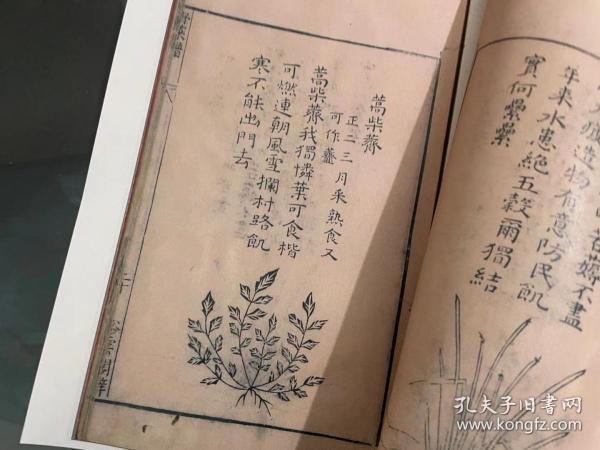 年來水患絕五穀爾獨結
實何纍纍
造物有意防民飢
不盡
蒿柴薺
正二三月采熟食又
可作虀
蒿柴薺我獨憐葉可食楷
可燃連朝風雪攔村路飢
寒不能出門去
孔夫子旧书网
www.kongfz.com